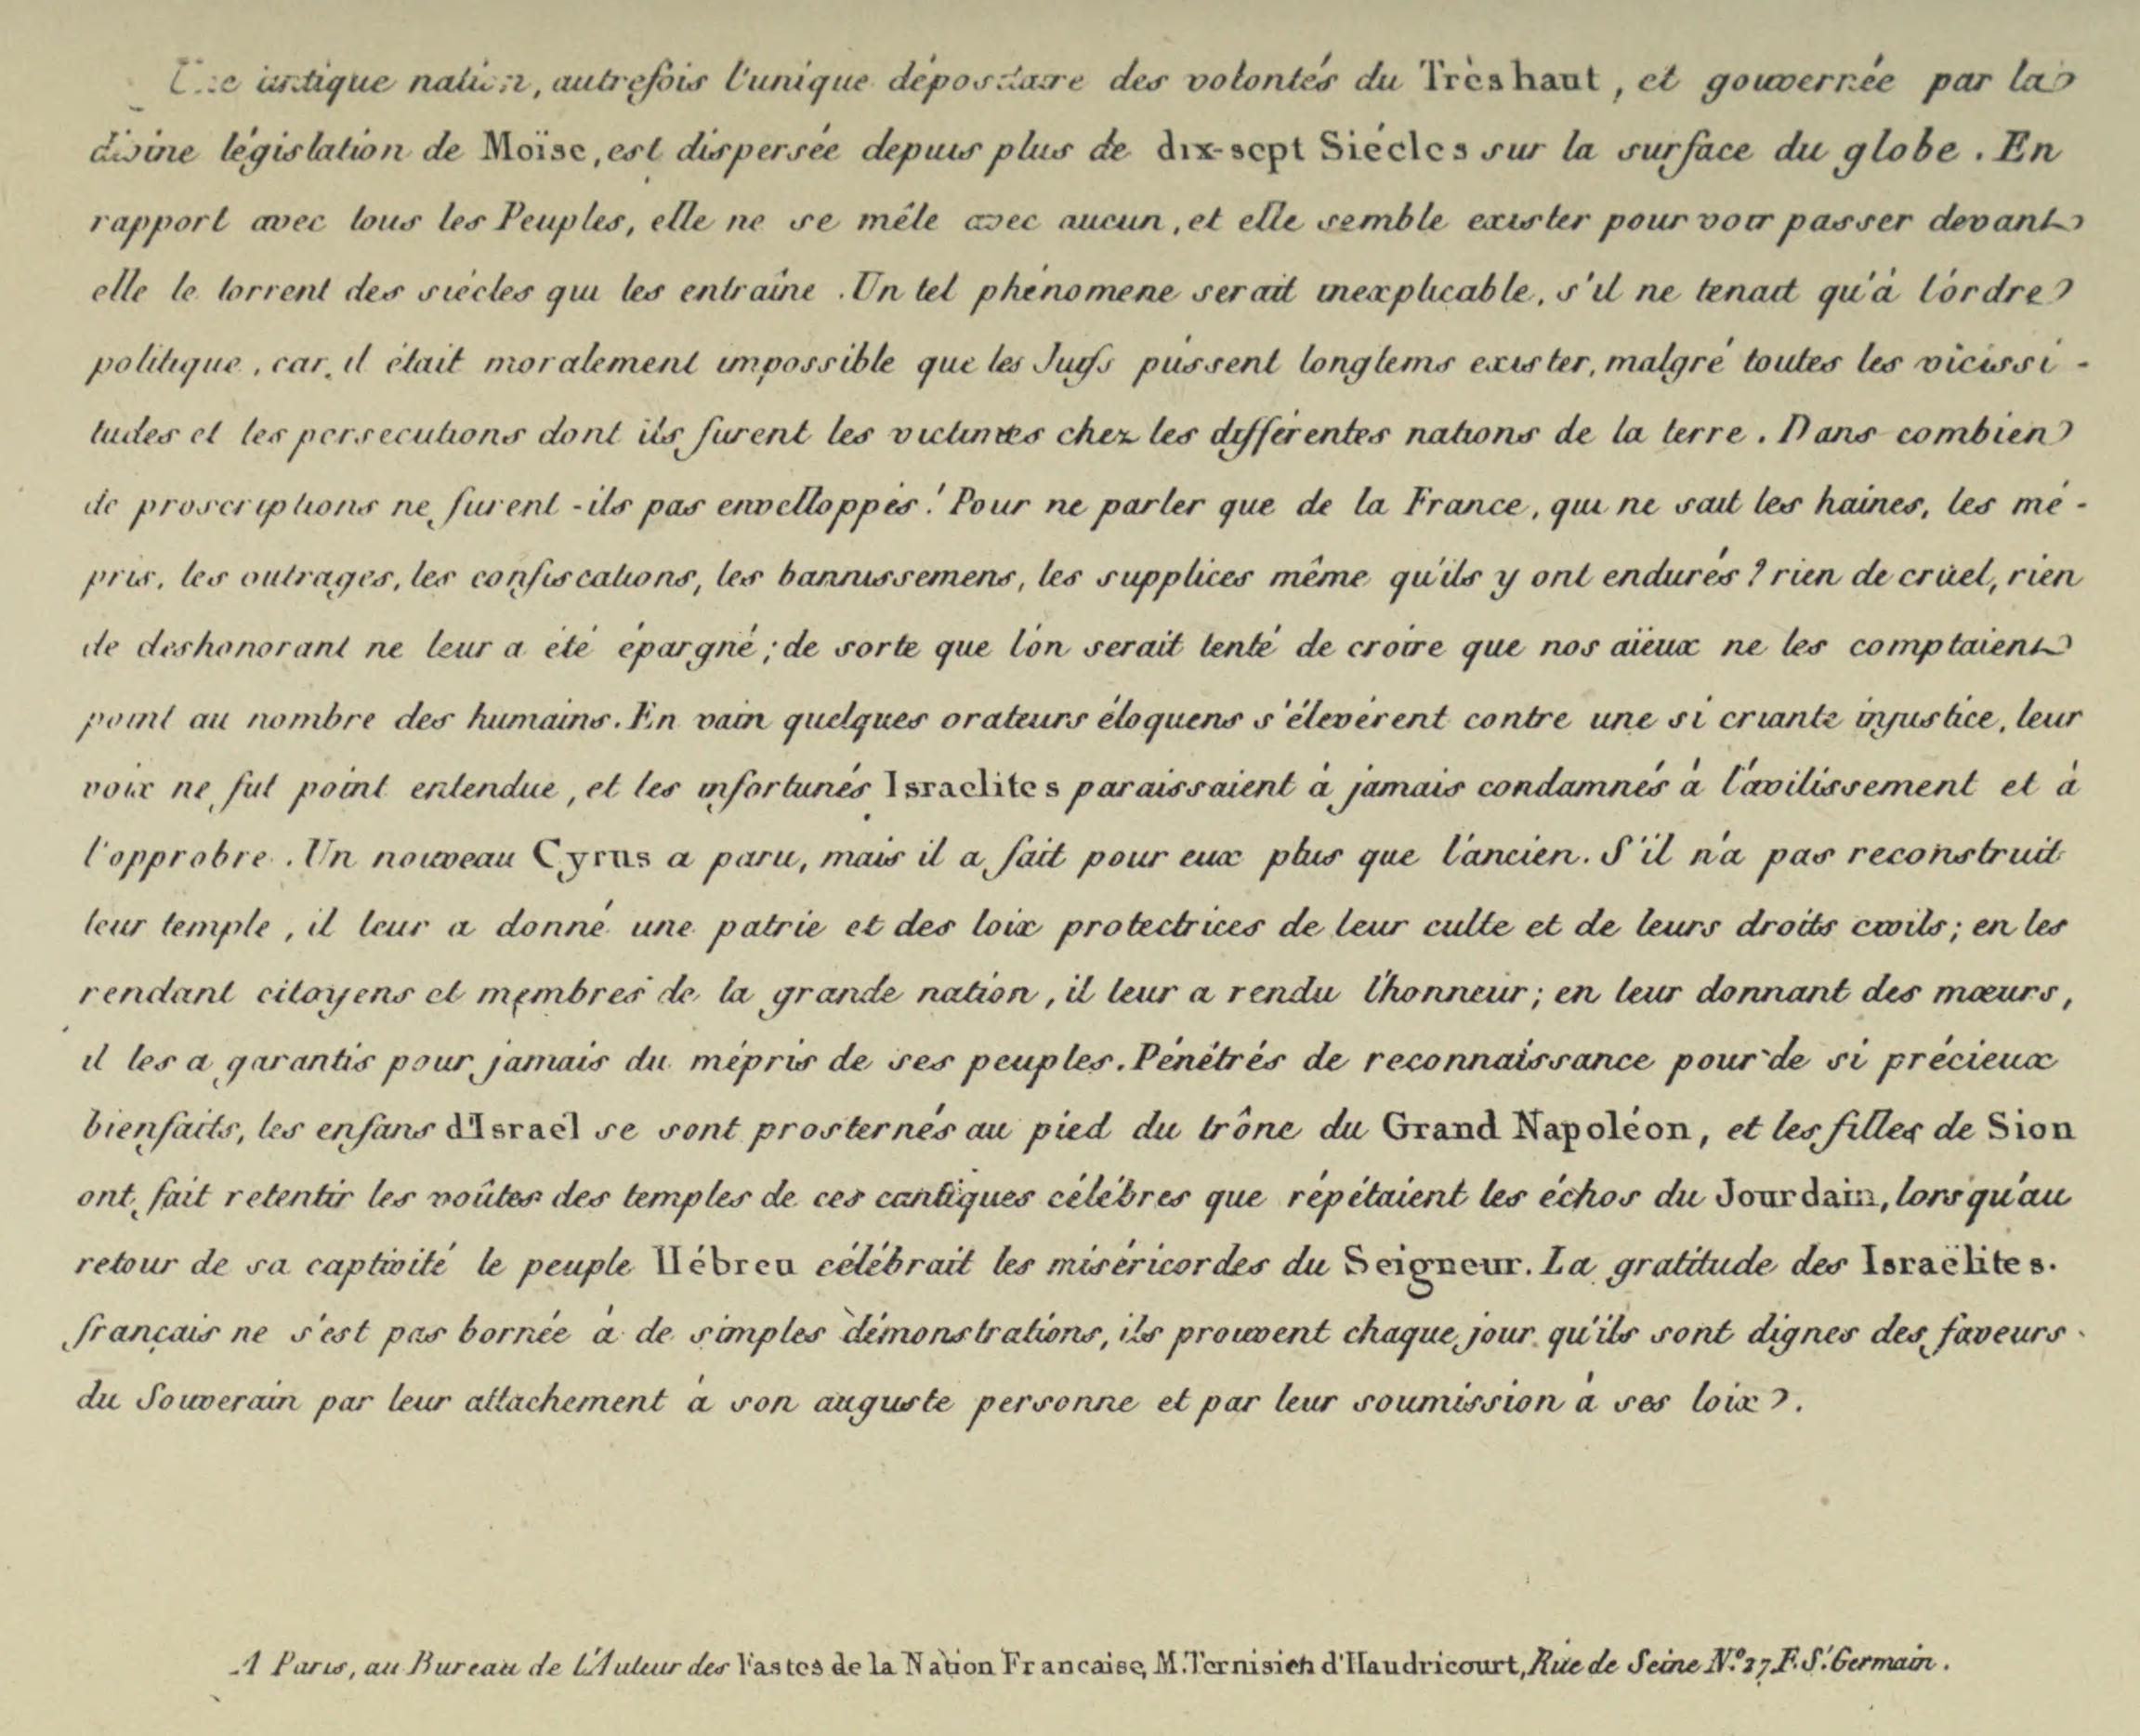 Une antique nation, autrefois l'unique dépositaire des volontés du Très haut, et gouvernée par la
divine législation de Moïse, est dispersée depuis plus de dix-sept Siécles sur la surface du globe. En
rapport avec tous les Peuples, elle ne se mêle avec aucun, et elle semble exister pour voir passer devant
elle le torrent des siécles qui les entraîne. Un tel phénomene serait inexplicable, s'il ne tenait qu'à l'ordre
politique, car il était moralement impossible que les Juifs pussent longtems exister, malgré toutes les vicissi-
tudes et les persecutions dont ils furent les victimes chez les différentes nations de la terre. Dans combien
de proscriptions ne furent-ils pas envelloppés! Pour ne parler que de la France, qui ne sait les haines, les mé-
pris, les outrages, les confiscations, les bannissemens, les supplices même qu'ils y ont endurés? rien de cruel, rien
de deshonorant ne leur a été épargné; de sorte que l'on serait tenté de croire que nos aïeux ne les comptaient
point au nombre des humains. En vain quelques orateurs éloquens s'élevérent contre une si criante injustice, leur
voix ne fut point entendue, et les infortunés Israelites paraissaient à jamais condamnés à l'avilissement et à
l'opprobre. Un nouveau Cyrus a paru, mais il a fait pour eux plus que l'ancien. S'il n'a pas reconstruit
leur temple, il leur a donné une patrie et des loix protectrices de leur culte et de leurs droits civils; en les
rendant citoyens et membres de la grande nation, il leur a rendu l'honneur; en leur donnant des mœurs,
il les a garantis pour jamais du mépris de ses peuples. Pénétrés de reconnaissance pour de si précieux
bienfaits, les enfans d'Israël se sont prosternés au pied du trône du Grand Napoléon, et les filles de Sion
ont fait retentir les voûtes des temples de ces cantiques célébres que répétaient les échos du Jourdain, lorsqu'au
retour de sa captivité le peuple Hébreu célébrait les miséricordes du Seigneur. La gratitude des Israëlites
français ne s'est pas bornée à de simples démonstrations, ils prouvent chaque jour qu'ils sont dignes des faveurs
du Souverain par leur attachement à son auguste personne et par leur soumission à ses loix.
A Paris, au Bureau de L'Auteur des Fastes de la Nation Francaise, M. Ternisien d'Haudricourt, Rue de Seine N.º 27 F. S.t Germain.